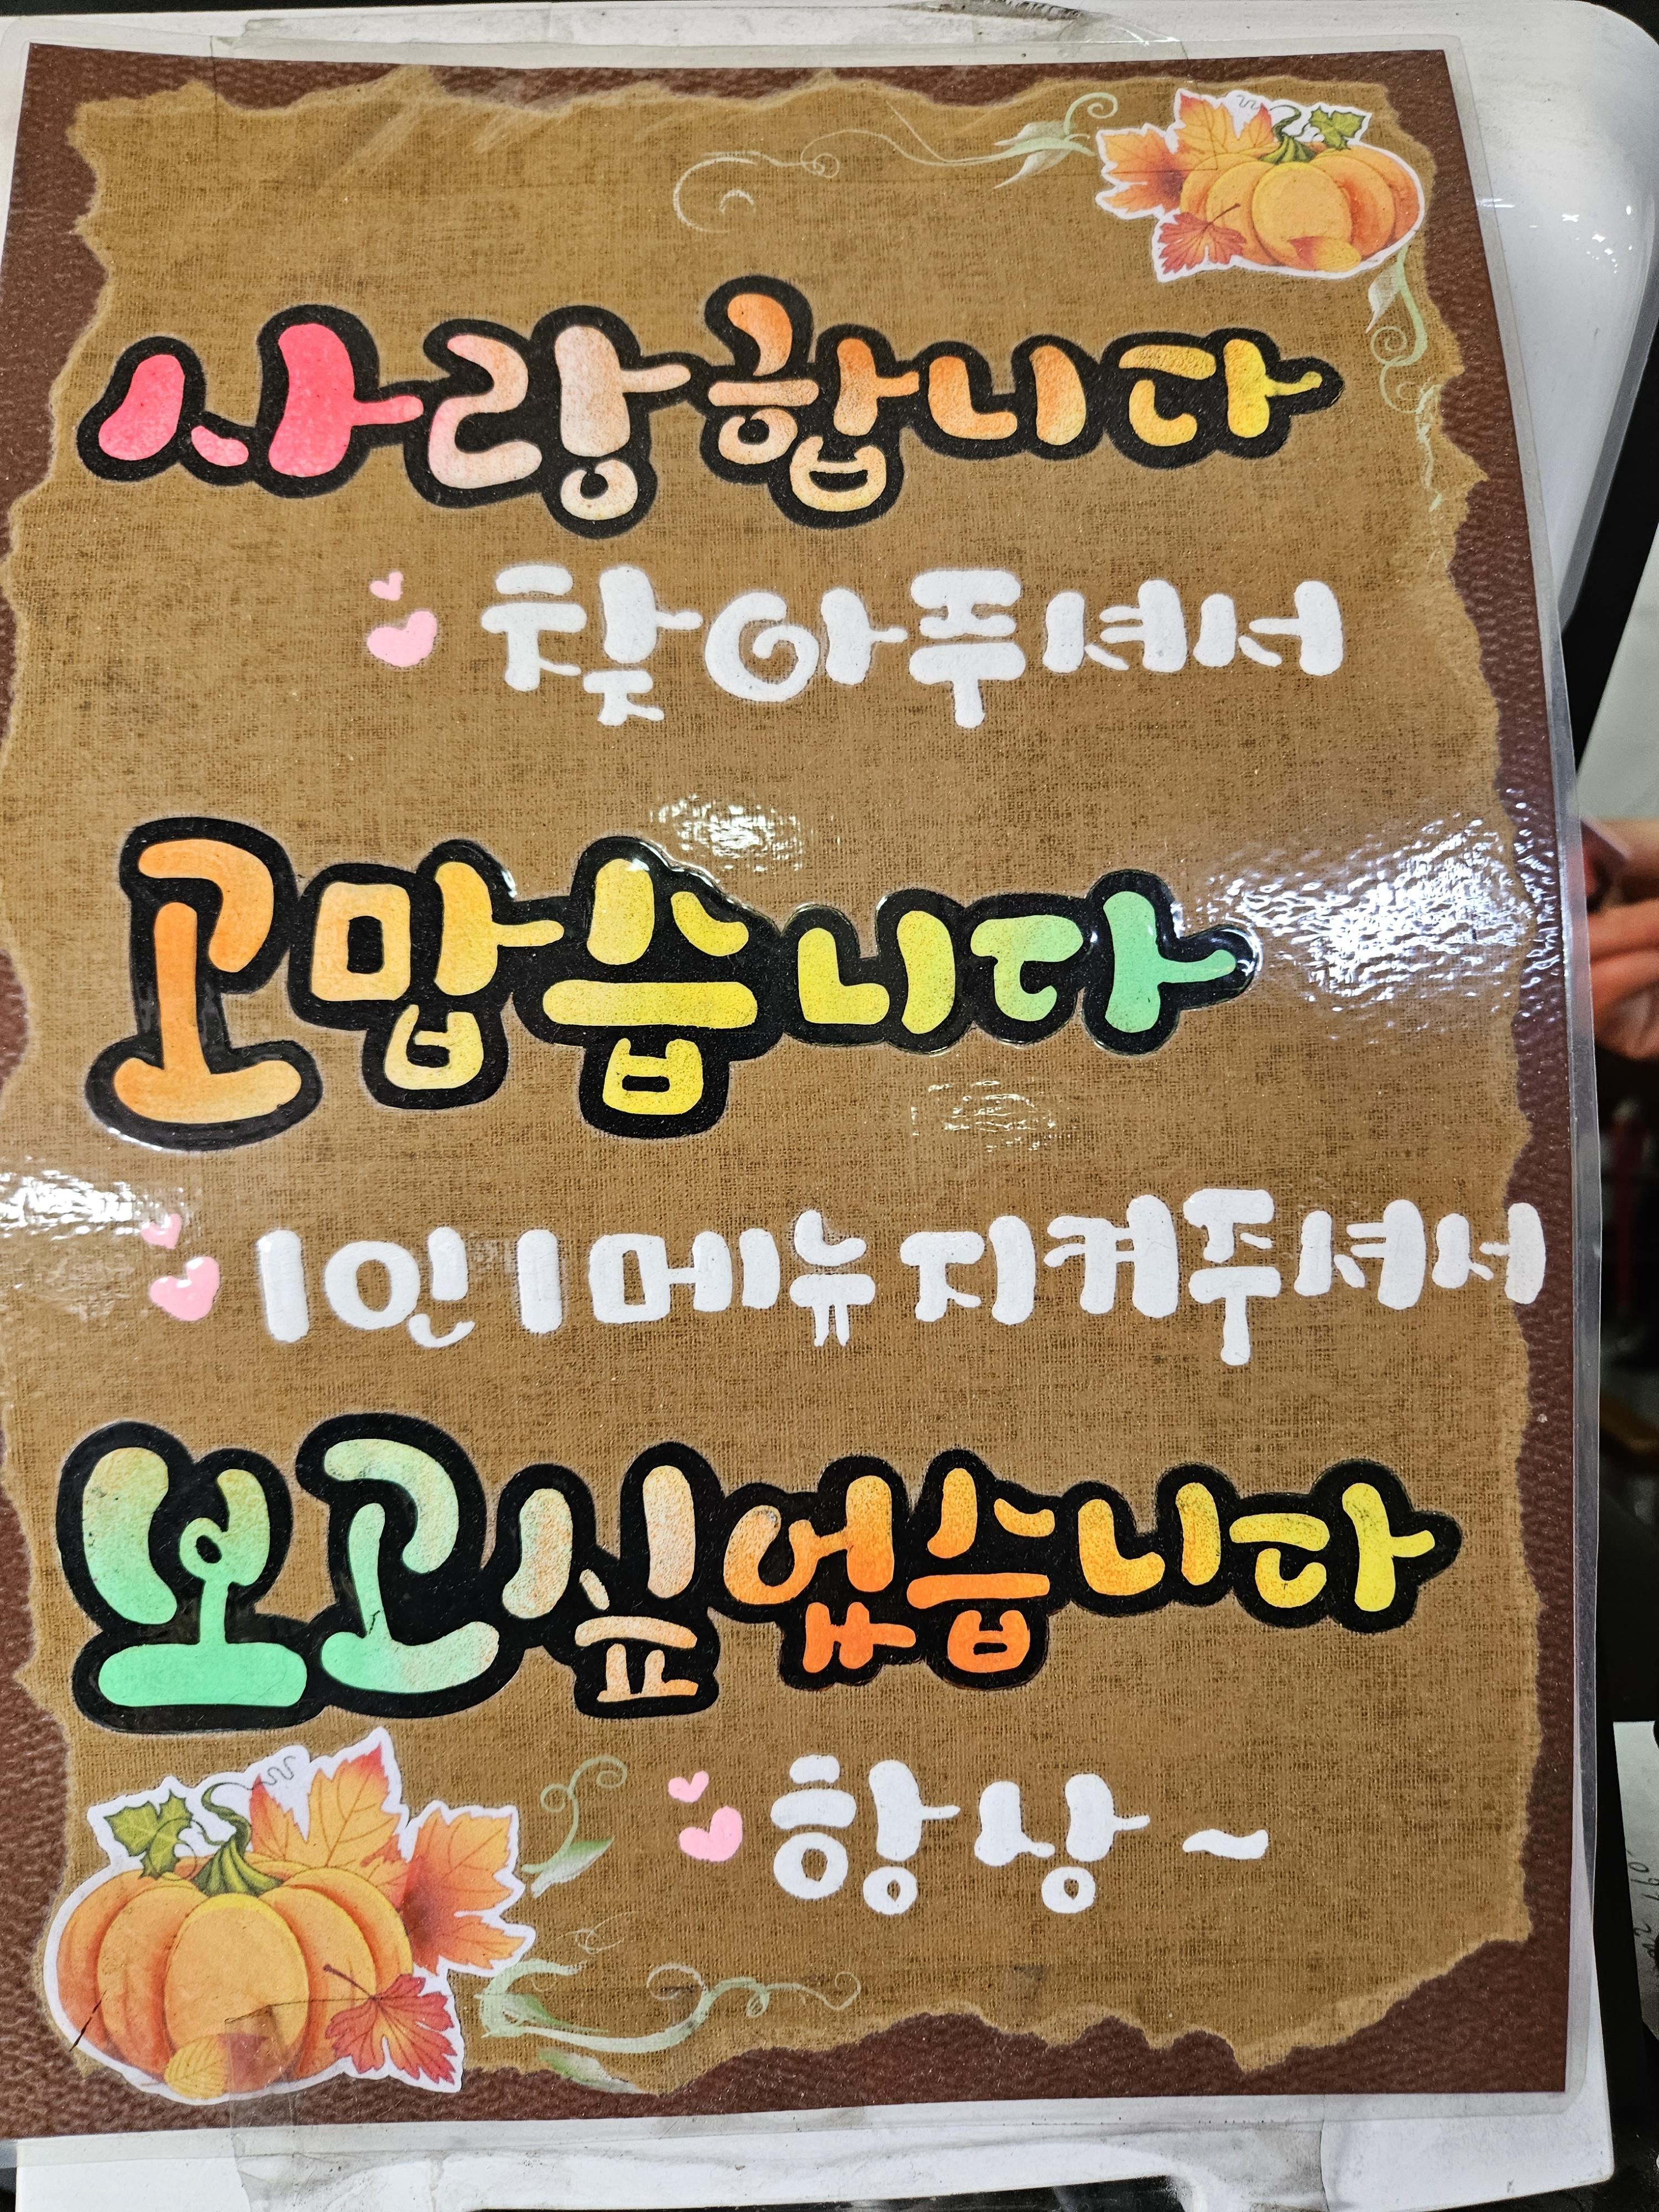 사랑합니다
찾아주셔서
고맙습니다
1인 1메뉴 지켜주셔서
보고싶었습니다
항상~